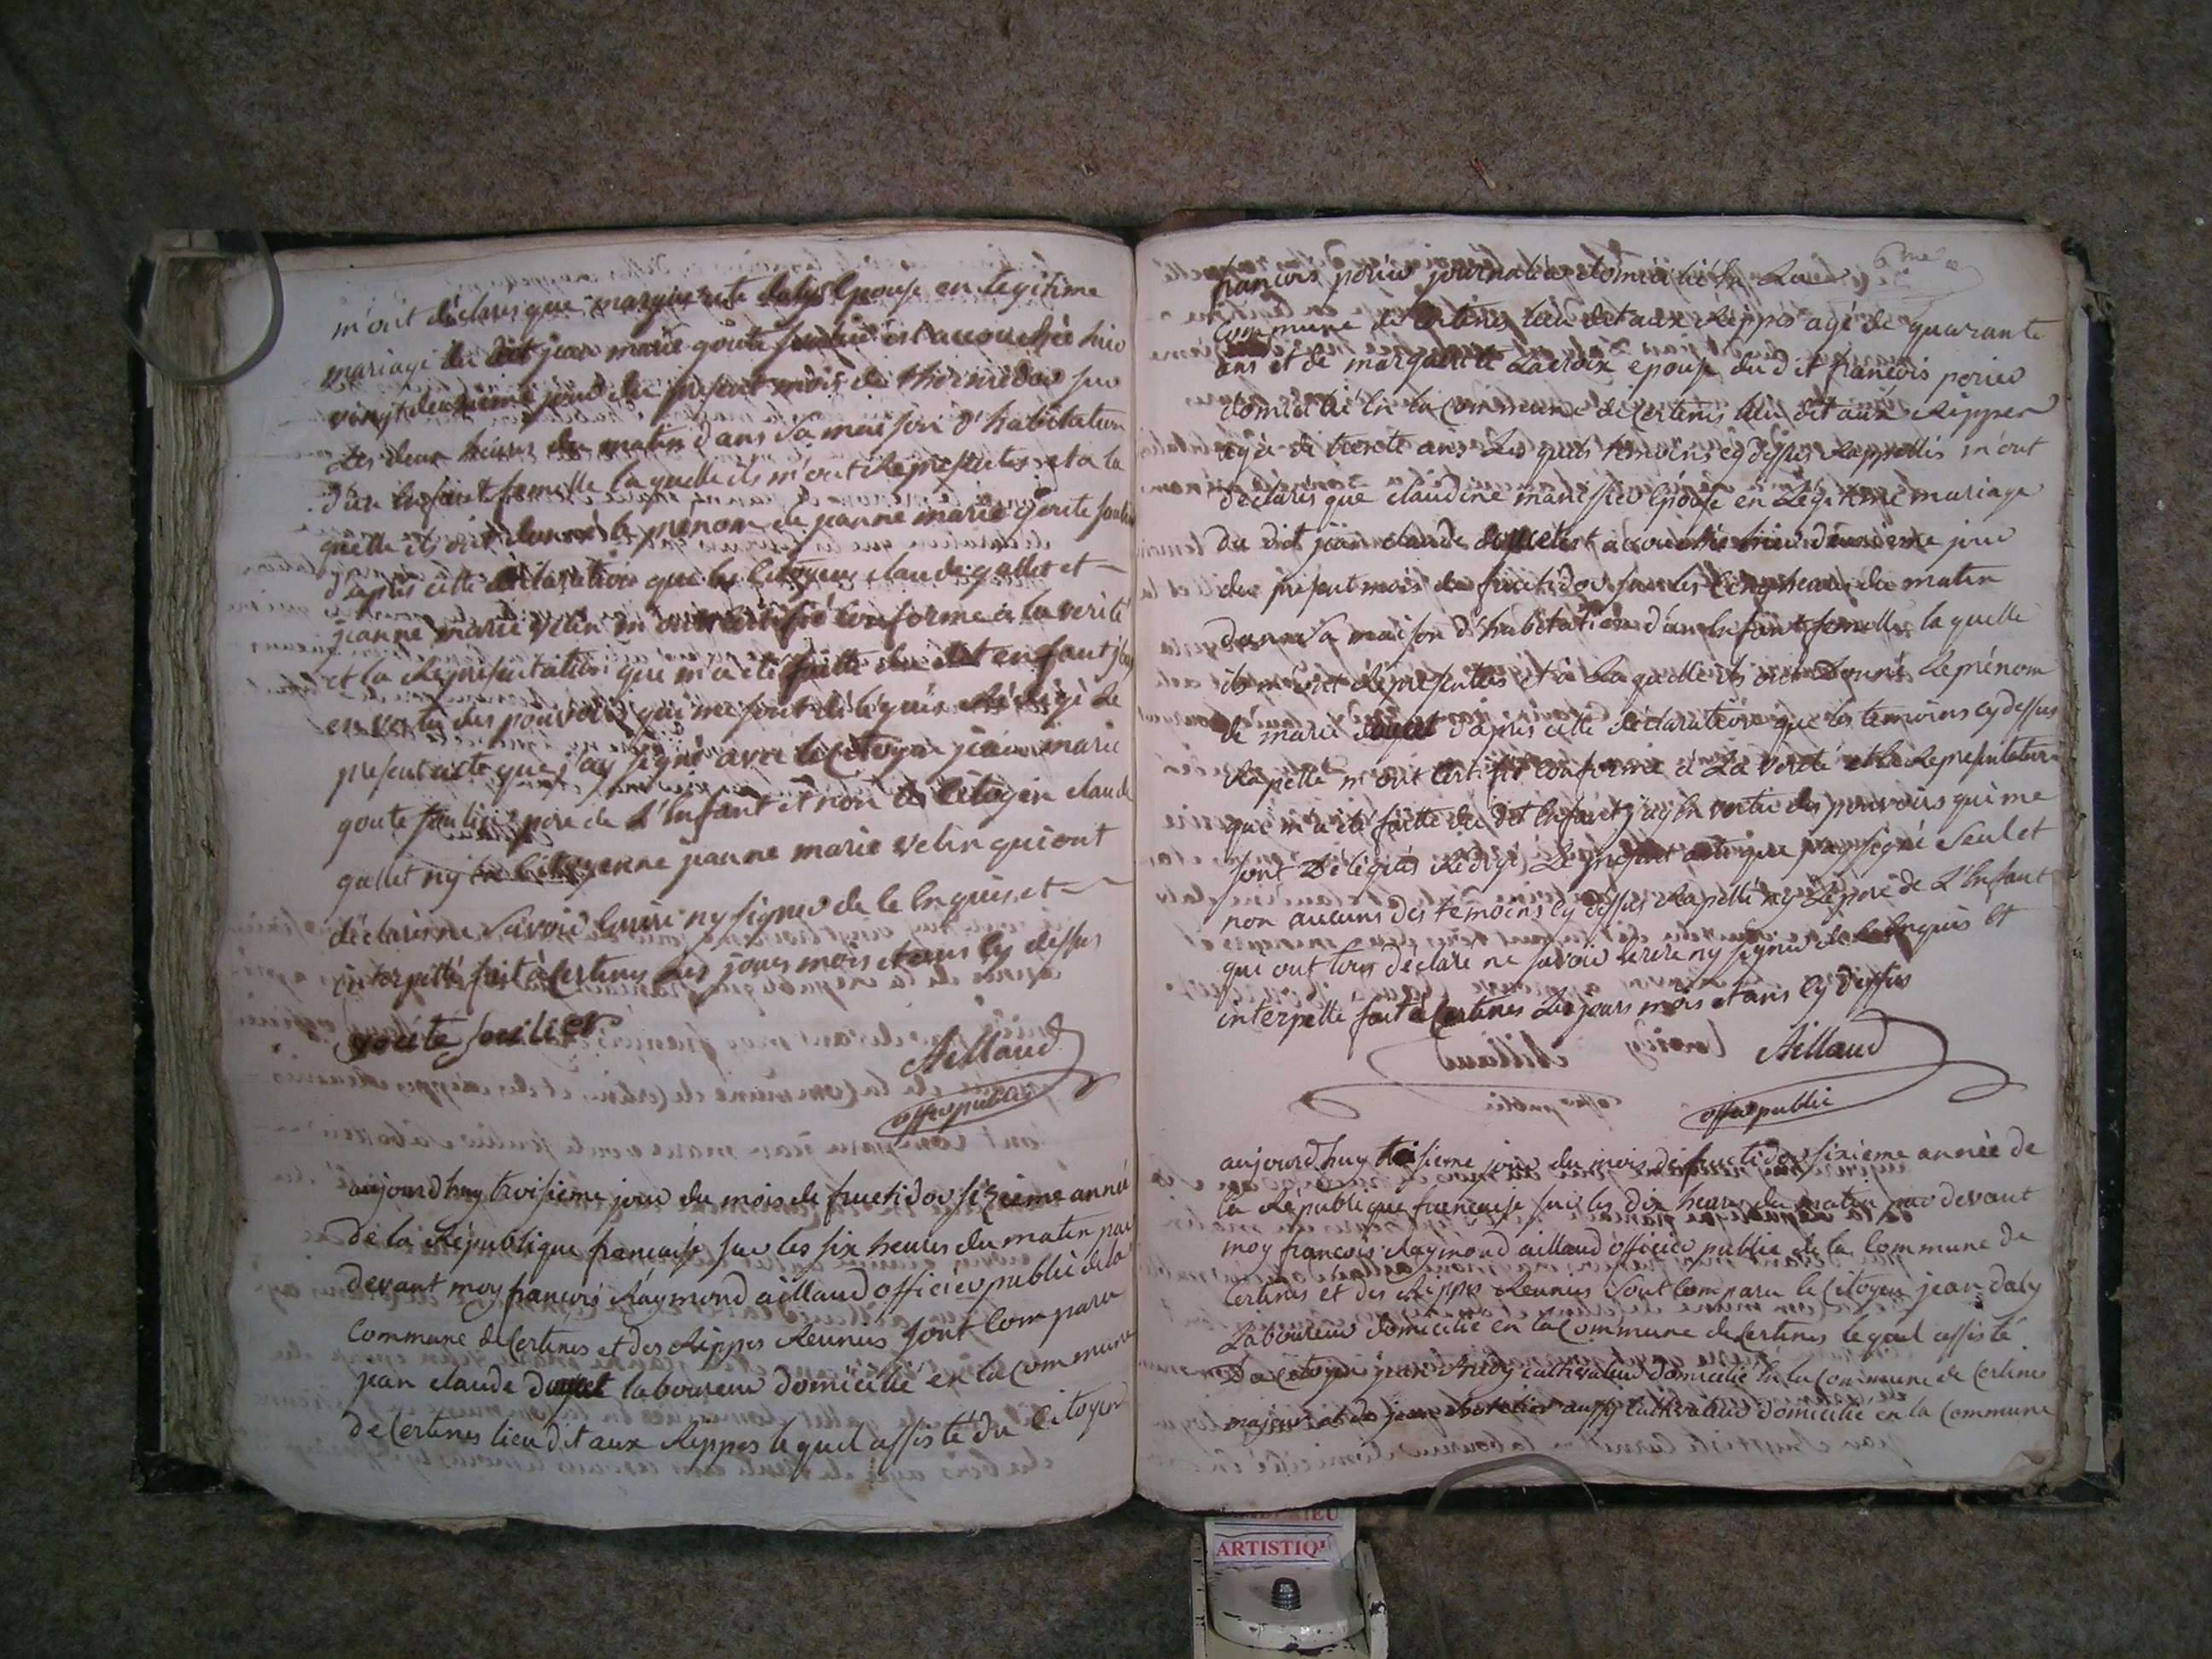 m'ont déclarés que marguerite daly Epouse en legitime
mariage du dit jean marie goute soulier est accouchée hier
vingt deuxieme jour du present mois de thermidor sur
les deux heures du matin dans sa maison d'habitation
d'un Enfant femelle laquelle ils m'ont Representés et a la
quelle ils ont donné le prenom de jeanne marie goute soulier
d'apres cette déclaration que les Citoyens claude gallet et
jeanne marie velin m'ont certifié conforme à la verité
et la Representation que m'a été faitte du dit enfant j'ay
en vertu des pouvoirs qui me sont délégués Rédigé Le
present acte que j'ay signé avec le Citoyen jean marie
goute soulier pere de L'Enfant et non le Citoyen claude
gallet ny la Citoyenne jeanne marie velin qui ont
déclarés ne savoir Ecrire ny signer de le Enquis et
interpellés fait à Certines Les jours mois et ans Cy dessus
goute soulier
Aillaud
officier public
aujourdhuy troisieme jour du mois de fructidor sixieme année
de la République francaise sur les six heures du matin par
devant moy francois Raymond aillaud officier public de la
Commune de Certines et des Rippes Reunies sont Comparu
jean claude laboureur domicilié en la Commune
de Certines lieu dit aux Rippes le quel assisté du Citoyen
6me
francois perier journalier domicilié En La
Commune de Certines lieu dit aux Rippes agé de quarante
ans et de marguerite Lacroix epouse du dit francois perier
domicilié En la Commune de Certines lieu dit aux Rippes
agée de trente ans Les quels temoins cy dessus Rappellés m'ont
déclarés que claudine Epouse en Legitime mariage
du dit jean claude est accouchée hier deuxieme jour
du present mois de fructidor sur les Cinq heures du matin
dans sa maison d'habitation d'un Enfant femelle laquelle
ils m'ont Représentés et à Laquelle ils ont Donné Le prénom
de marie d'apres cette declaration que les temoins cy dessus
Rapellé m'ont Certifié Conforme à La verité et la Representation
qui m'a été faitte du dit Enfant j'ay En vertu des pouvoirs qui me
sont Délégués Rédigé Le present acte que j'ay signé Seul et
non aucuns des temoins Cy dessus Rapellé ny Le pere de L'Enfant
qui ont tous declaré ne savoir Ecrire ny signer de Enquis et
interpellé fait à Certines Les jours mois et ans Cy dessus
Aillaud
officier public
aujourdhuy troisieme jour du mois de fructidor sixieme année de
la République francaise sur les dix heures du matin par devant
moy francois Raymond aillaud officier public de la Commune de
Certines et des Rippes Reunies sont Comparu le Citoyen jean daly
Laboureur domicilié en la Commune de Certines le quel assisté
Du Citoyen jean cultivateur domicilié En la Commune de Certines
majeur et de jean aussy Cultivateur domicilié en la Commune
ARTISTIQ